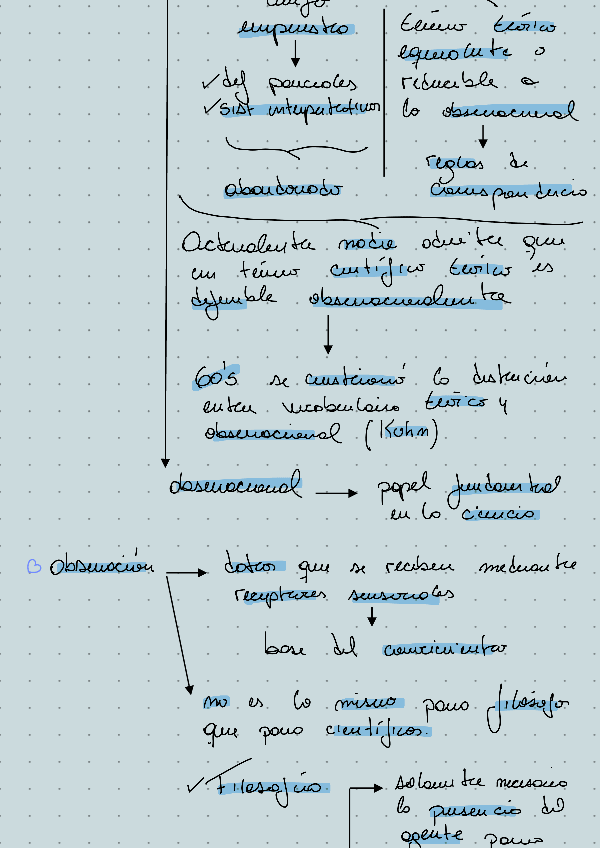 empirista
✓ def parciales
✓ sist interpretativos
abandonado
término teórico
equivalente o
reducible a
lo observacional
reglas de
correspondencia
Actualmente nadie admite que
un término científico teórico es
definible observacionalmente
60's se cuestionó la distinción
entre vocabulario teórico y
observacional (Kuhn)
observacional → papel fundamental
en la ciencia
Observación → datos que se reciben mediante
receptores sensoriales
base del conocimiento
no es lo mismo para filósofo
que para científicos.
✓ Filosofía
solamente necesario
la presencia del
agente para